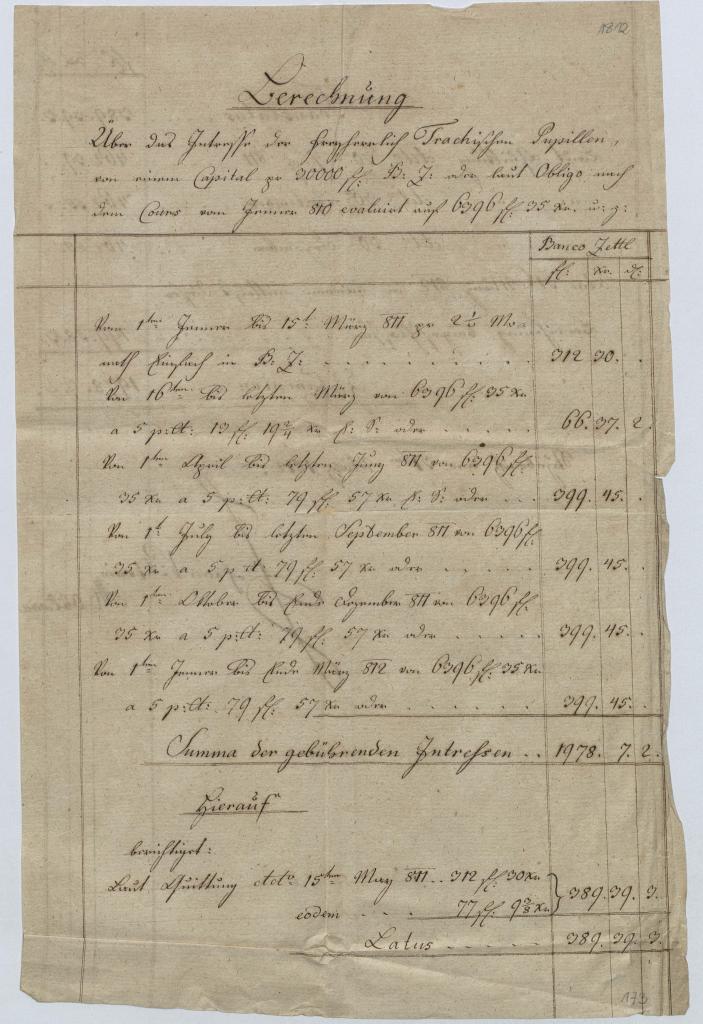 1812
Berechnung
Über das Interesse der freyherrlich Trachischen Pupillen,
von einem Capital pr 30000 fl: B: Z: oder laut Obligo nach
dem Cours vom Jenner 810 evaluirt auf 6396 fl: 35 Xr. u: z:
Banco Zettl
fl: Xr. d:
Vom 1ten Jenner bis 15t März 811 pr 2 1/2 Mo-
nath einfach in B: Z: . . . . . . . . . 312 30. .
Von 16ten bis letzten März von 6396 fl: 35 Xr
a 5 p:Ct: 13 fl: 19 3/4 Xr E: S: oder . . . . . 66. 37. 2.
Von 1ten April bis letzten Juny 811 von 6396 fl:
35 Xr a 5 p:Ct: 79 fl: 57 Xr E: S: oder . . . 399. 45. .
Von 1t July bis letzten September 811 von 6396 fl:
35 Xr a 5 p Ct 79 fl: 57 Xr oder . . . . . 399. 45. .
Von 1ten Oktober bis Ende Dezember 811 von 6396 fl:
35 Xr a 5 p:Ct: 79 fl: 57 Xr oder . . . . . 399. 45. .
Von 1ten Jenner bis Ende März 812 von 6396 fl: 35 Xr
a 5 p:Ct: 79 fl: 57 Xr oder . . . . . . 399. 45. .
Summa der gebührenden Intressen . . 1978. 7. 2.
Hierauf
berichtiget:
Laut Quittung dcto 15ten May 811 . . 312 fl 30 Xr
eodem . . . 77 fl: 9 3/8 Xr } 389. 39. 3.
Latus . . . . . 389. 39. 3.
173